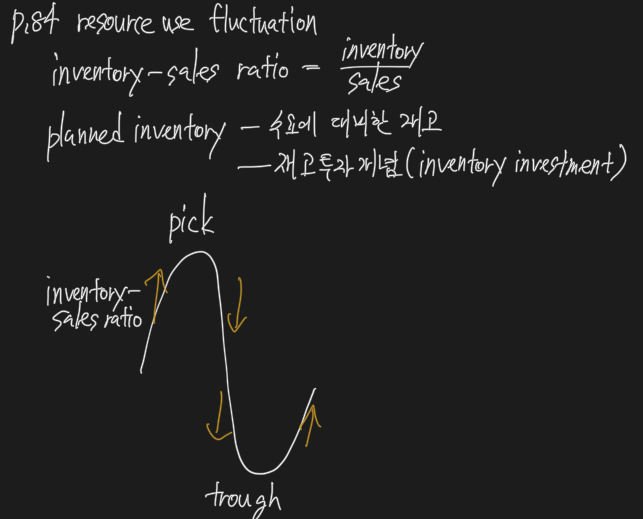 p.84 resource use fluctuation
inventory-sales ratio = inventory / sales
planned inventory – 수요에 대비한 재고
– 재고투자개념(inventory investment)
pick
inventory-
sales ratio
trough